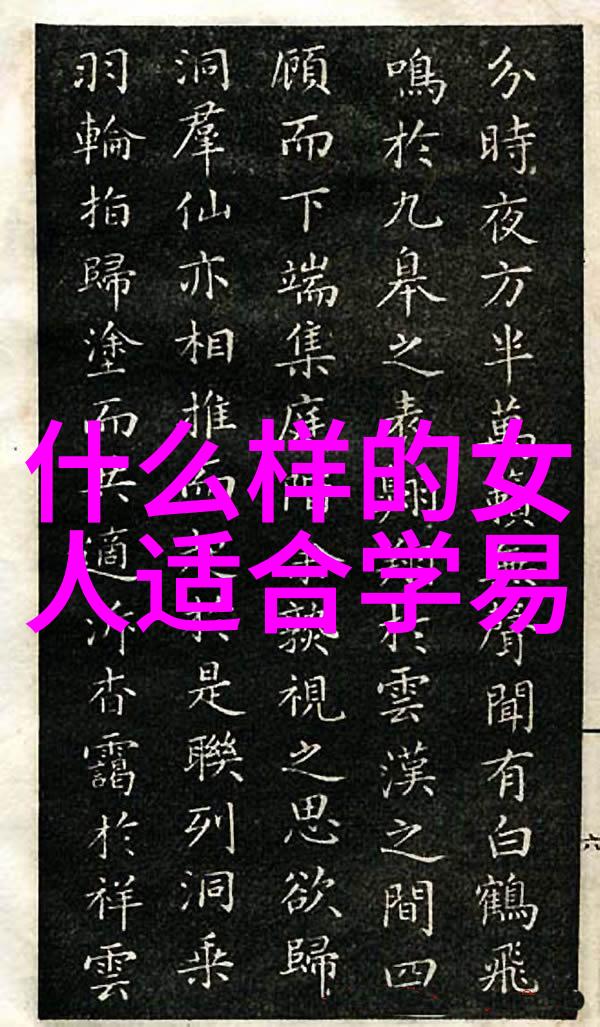 什么样的女
人适合学易
分時夜方半萬籟無聲聞有白鶴飛
鳴於九皋之表翱翔於雲漢之間四
顧而下端集庭視之思欲歸
洞羣仙亦相推而於是聯列洞乘
羽輪指歸塗而共適泝杳靄於祥雲
六